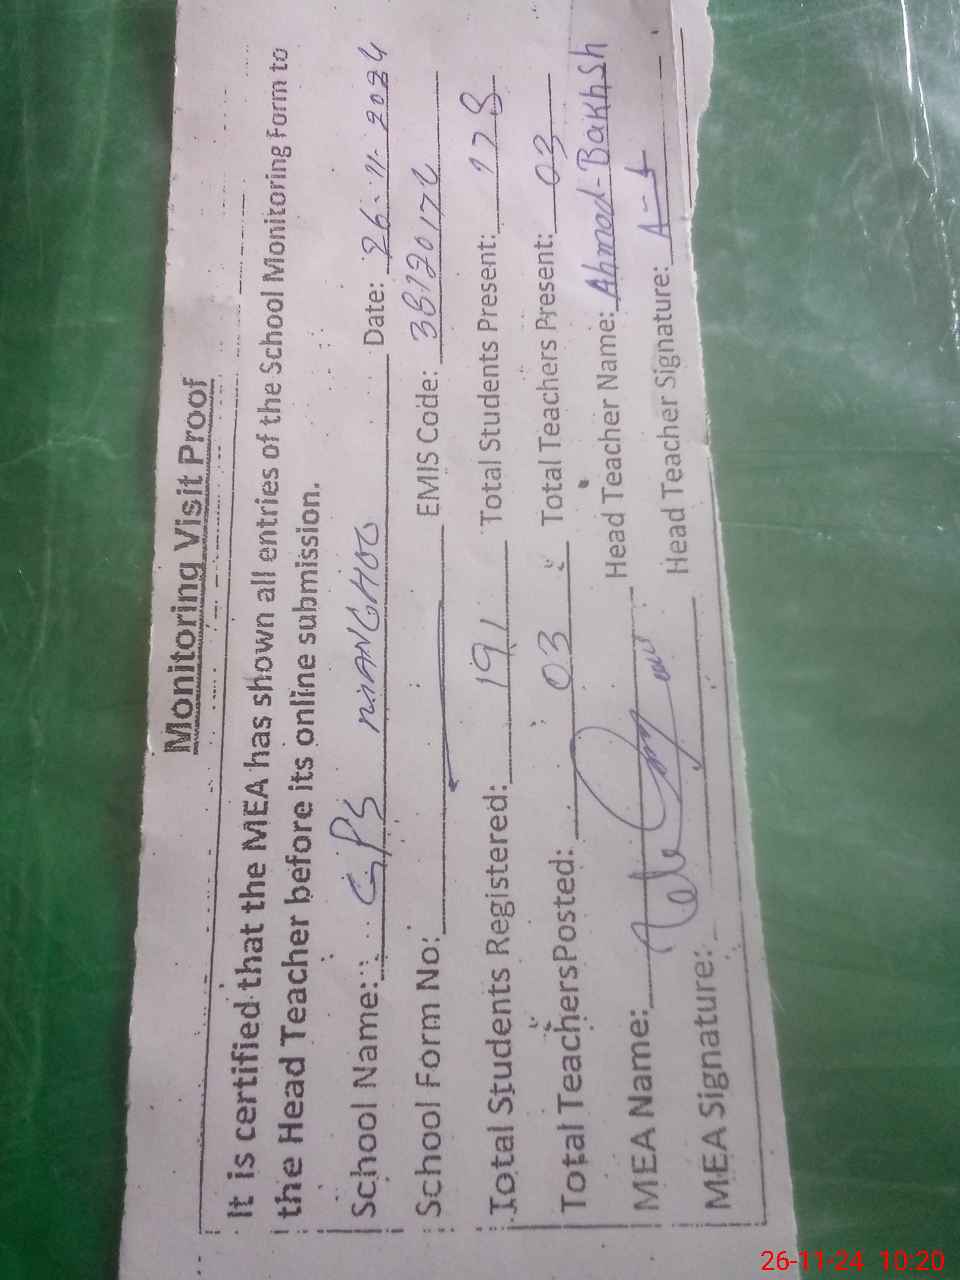 Monitoring Visit Proof
It is certified that the MEA has shown all entries of the School Monitoring Form to
the Head Teacher before its online submission.
School Name: GPS NANGHOO Date: 26-11-2024
School Form No: EMIS Code:
Total Students Registered: 191 Total Students Present: 178
Total TeachersPosted: 03 Total Teachers Present: 03
MEA Name: Head Teacher Name: Ahmad-Bakhsh
MEA Signature: Head Teacher Signature:
26-11-24 10:20